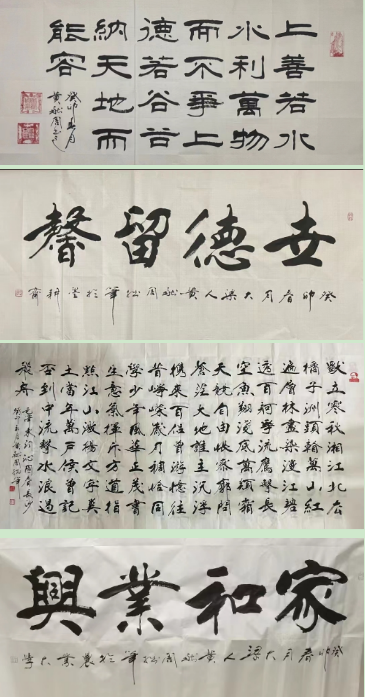 上善若水
水利萬物
而不爭上
德若谷谷
納天地而
能容
癸卯春月
世德留馨
癸卯春月大梁人黃周松筆於墨耕齋
獨立寒秋湘江北去
橘子洲頭看萬山紅
遍層林盡染漫江碧
透百舸爭流鷹擊長
空魚翔淺底萬類霜
天競自由悵寥廓問
蒼茫大地誰主沉浮
攜來百侶曾遊憶往
昔崢嶸歲月稠恰同
學少年風華正茂書
生意氣揮斥方遒指
點江山激揚文字糞
土當年萬戶侯曾記
否到中流擊水浪遏
飛舟
毛澤東詞沁園春長沙
家和業興
癸卯春月大梁人黃周松筆於農業大學